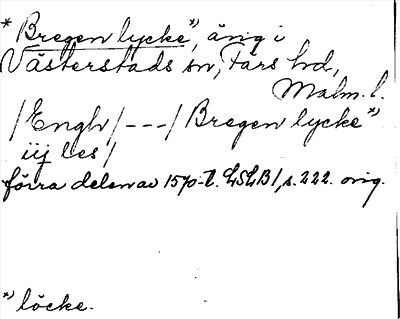 * Bregen lycke *), äng i
Västerstads sn, Färs hd,
Malm. l.
/Engh/---/Bregen lycke *)
iij les/
förra delen av 1570-t. LSLB1, s. 222. orig.
*) löcke.